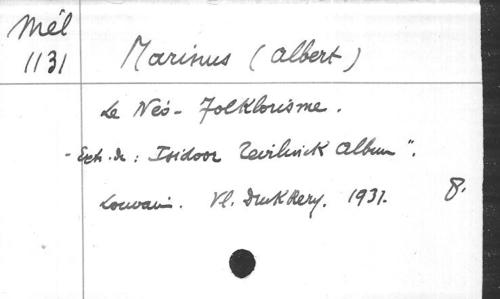 Mél
1131
Marinus (Albert)
Le Néo-Folklorisme.
- Extr. de : Isidoor Teirlinck Album".
Louvain. Vl. Drukkery. 1931. 8.